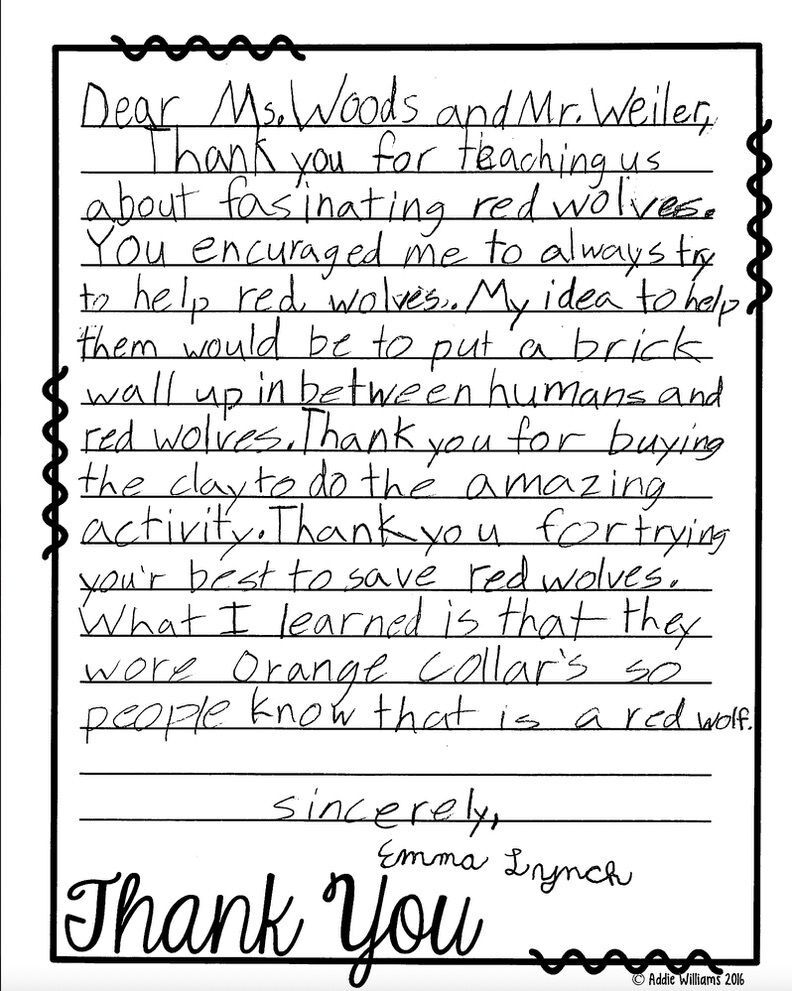 Dear Ms. Woods and Mr. Weiler,
Thank you for teaching us
about fasinating red wolves.
You encuraged me to always try
to help red wolves. My idea to help
them would be to put a brick
wall up in between humans and
red wolves. Thank you for buying
the clay to do the amazing
activity. Thank you for trying
you'r best to save red wolves.
What I learned is that they
wore orange collar's so
people know that is a red wolf.
sincerely,
Emma Lynch
Thank You
© Addie Williams 2016